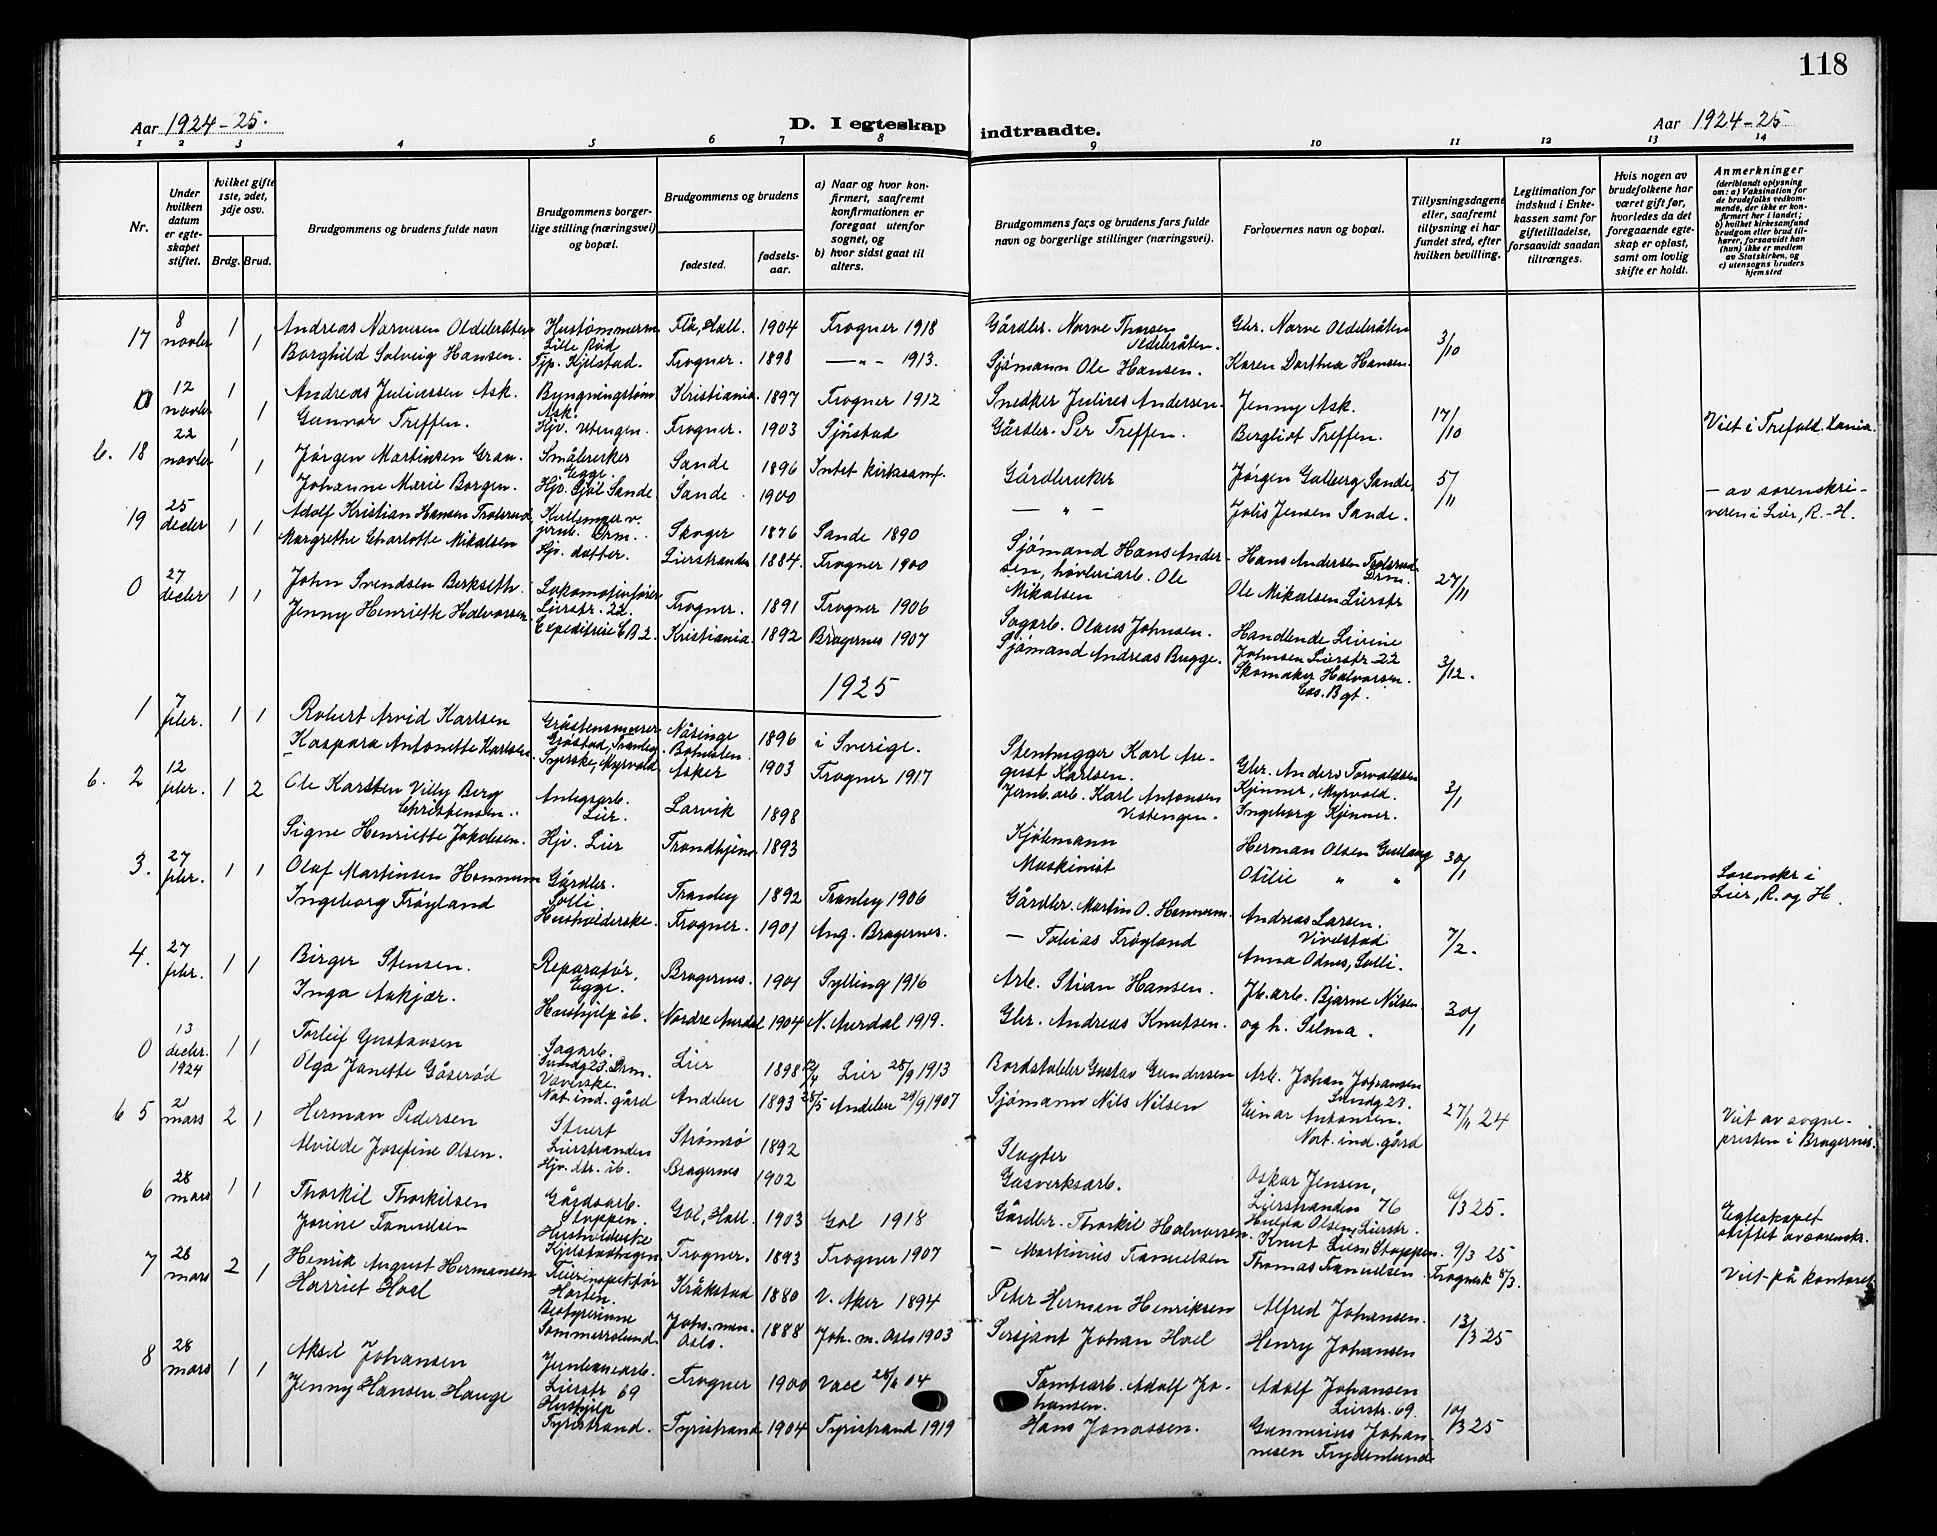 118
Aar 1924-25.
D. I egteskap indtraadte.
Aar 1924-25
1 2 3 4 5 6 7 8 9 10 11 12 13 14
Nr.
Under hvilken datum er egteskapet stiftet.
hvilket gifte 1ste, 2det, 3dje osv.
Brdg. Brud.
Brudgommens og brudens fulde navn
Brudgommens borgerlige stilling (næringsvei) og bopæl.
Brudgommens og brudens
fødested.
fødselsaar.
a) Naar og hvor konfirmert, saafremt konfirmationen er foregaat utenfor sognet, og
b) hvor sidst gaat til alters.
Brudgommens fars og brudens fars fulde navn og borgerlige stillinger (næringsvei).
Forlovernes navn og bopæl.
Tillysningsdagene eller, saafremt tillysning ei har fundet sted, efter hvilken bevilling.
Legitimation for indskud i Enkekassen samt for giftetilladelse, forsaavidt saadan tiltrænges.
Hvis nogen av brudefolkene har været gift før, hvorledes da det foregaaende egteskap er opløst, samt om lovlig skifte er holdt.
Anmerkninger
(deriblandt oplysning om: a) Vaksination for de brudefolks vedkommende, der ikke er konfirmert her i landet; b) hvilket kirkesamfund brudgom eller brud tilhører, forsaavidt han (hun) ikke er medlem av Statskirken, og c) utensogns bruders hjemsted
17 8 novbr 1 Andreas Narvesen Oldebråten Hustømmerm. Lille Rød Flå, Hall. 1904 Frogner 1918 Gårdbr. Narve Thorsen Oldebråten. Gbr. Narve Oldebråten 3/10
1 Borghild Solveig Hansen. Tjp. Kjelstad. Frogner. 1898 —"— 1913. Sjømann Ole Hansen. Karen Dorthea Hansen.
0 12 novbr 1 Andreas Juliussen Ask. Bygningstøm. Ask. Kristiania 1897 Frogner 1912 Snedker Julius Andersen. Jenny Ask. 17/10
1 Gunnor Treffen. Hjv. Utengen. Frogner. 1903 Sjåstad Gårdbr. Per Treffen. Bergliot Treffen. Viet i Trefold.
6. 18 22 novbr 1 Jørgen Martinsen Gran. Småbruker Egge. Sande 1896 Intet kirkesamf. Gårdbruker Jørgen Galberg Sande, 5/11
1 Johanne Marie Borgen. Hjv. Sjøl Sande Sande 1900 — " — Jølis Jensen Sande. — av sorenskriveren i Lier, R.-H.
19 25 decbr 1 1 Adolf Kristian Hansen Trolsrud jernb. Drm. Skoger 1876 Sande 1890 Sjømand Hans Andersen, høvleriarb. Ole Mikalsen Hans Andersen Trolsrud Drm.
Margrethe Charlotte Mikalsen Hjv. datter. Lierstranden 1884. Frogner 1900 Ole Mikalsen Lierstr 27/11
0 27 decbr 1 1 John Svendsen Berkseth. Lokomotivfører Lierstr. 22. Frogner. 1891 Frogner 1906 Sagarb. Olaus Johnsen. Handlende Livine Johnsen Lierstr 22
Jenny Henriette Halvorsen Expeditrise CB 2. Kristiania. 1892 Bragernes 1907 Sjømand Andreas Bugge. Skomaker Halvorsen. Cas. B gt. 3/12.
1925
1 7 febr. 1 1 Robert Arvid Karlsen Gråstensmurer Grøstad, Tranby. Nåsinge Bohuslen 1896 i Sverige. Stenhugger Karl August Karlsen. Gbr. Anders Torvaldsen Kjenner, Myrvold. 3/1
Kaspara Antonette Karlsen Syerske, Myrvold Asker 1903 Frogner 1917 Jernb. arb. Karl Antonsen Vestengen. Ingeborg Kjenner.
6. 2 12 febr. 1 2 Ole Karsten Villy Berg Christensen. Anlegsarb. Lier. Larvik 1898 Kjøbmann Herman Olsen 30/1
Signe Henriette Jakobsen. Hjv. Lier Trondhjem 1893 Maskinist Otilie " " Sorenskr i Lier, R. og H.
3. 27 febr. 1 1 Olaf Martinsen Hennum Gårdbr. Solli Tranby 1892 Tranby 1906 Gårdbr. Martin O. Hennum. Andreas Larsen. Vivelstad 7/2.
Ingeborg Frøyland Husholderske. Frogner. 1901 Ang. Bragernes. — Tobias Frøyland Anna Odnes, Solli.
4. 27 febr. 1 1 Birger Stensen. Reparatør, Egge. Bragernes. 1901 Sylling 1916 Arb. Stian Hansen. Jb. arb. Bjarne Nilsen 30/1
Inga Askjær. Hushjelp ib. Nordre Aurdal 1904 N. Aurdal 1919. Gbr. Andreas Knutsen. og h. Selma.
0 13 decbr. 1924 1 1 Torleif Gustavsen Sagarb. Sundg 23. Drm. Lier 1898 Lier 28/9 1913 Bordstabler Gustav Gundersen Arb. Johan Johansen Sundg 27.
Olga Janette Gåserød Væverske. Not. ind. gård Andebu 1893 28/5 Andebu 29/9 1907 Sjømann Nils Nilsen Einar Antonsen. Not. ind. gård 27/11 24
6 5 2 mars 2 1 Herman Pedersen Stuert Lierstranden Strømsø 1892 Slagter Oskar Jensen, Lierstranden 76 6/3 25. Viet av sognepresten i Bragernes.
Alvilde Josefine Olsen. Hjv. dtr. ib. Bragernes 1902 Gasverksarb. Hulda Olsen, Lierstr.
6 28 mars 1 1 Thorkil Thorkilsen Gårdsarb. Stoppen. Gol, Hall. 1903 Gol 1918 Gårdbr. Thorkil Halvorsen. Knut Lien, Stoppen. 9/3 25 Egteskapet stiftet av sorenskr.
Josine Tanudsen Husholderske Kjelstadhagen Frogner. 1893 Frogner 1907 — Martinius Tanuelsen Thomas Tanuelsen Frognerk 8/3.
7 28 mars 2 1 Henrik August Hermansen Horten. Kråkstad 1880 V. Aker 1894 Peter Herman Henriksen Alfred Johansen. 13/3 25 Viet på kontoret
Harriet Hoel Bestyrerinne Sommerrolund Johs. men. Oslo. 1888 Joh. m. Oslo 1903 Sersjant Johan Hoel Henry Johansen
8 28 mars 1 1 Aksel Johansen Jernbanearb. Lierstr 69 Frogner 1900 Vacc 04 Tomtearb. Adolf Johansen. Adolf Johansen Lierstr. 69. 10/3 25
Jenny Hansen Hauge Hushjelp Tyristrand. Tyristrand 1904 Tyristrand 1919 Hans Jonassen. Gunnerius Johannesen Frydenlund